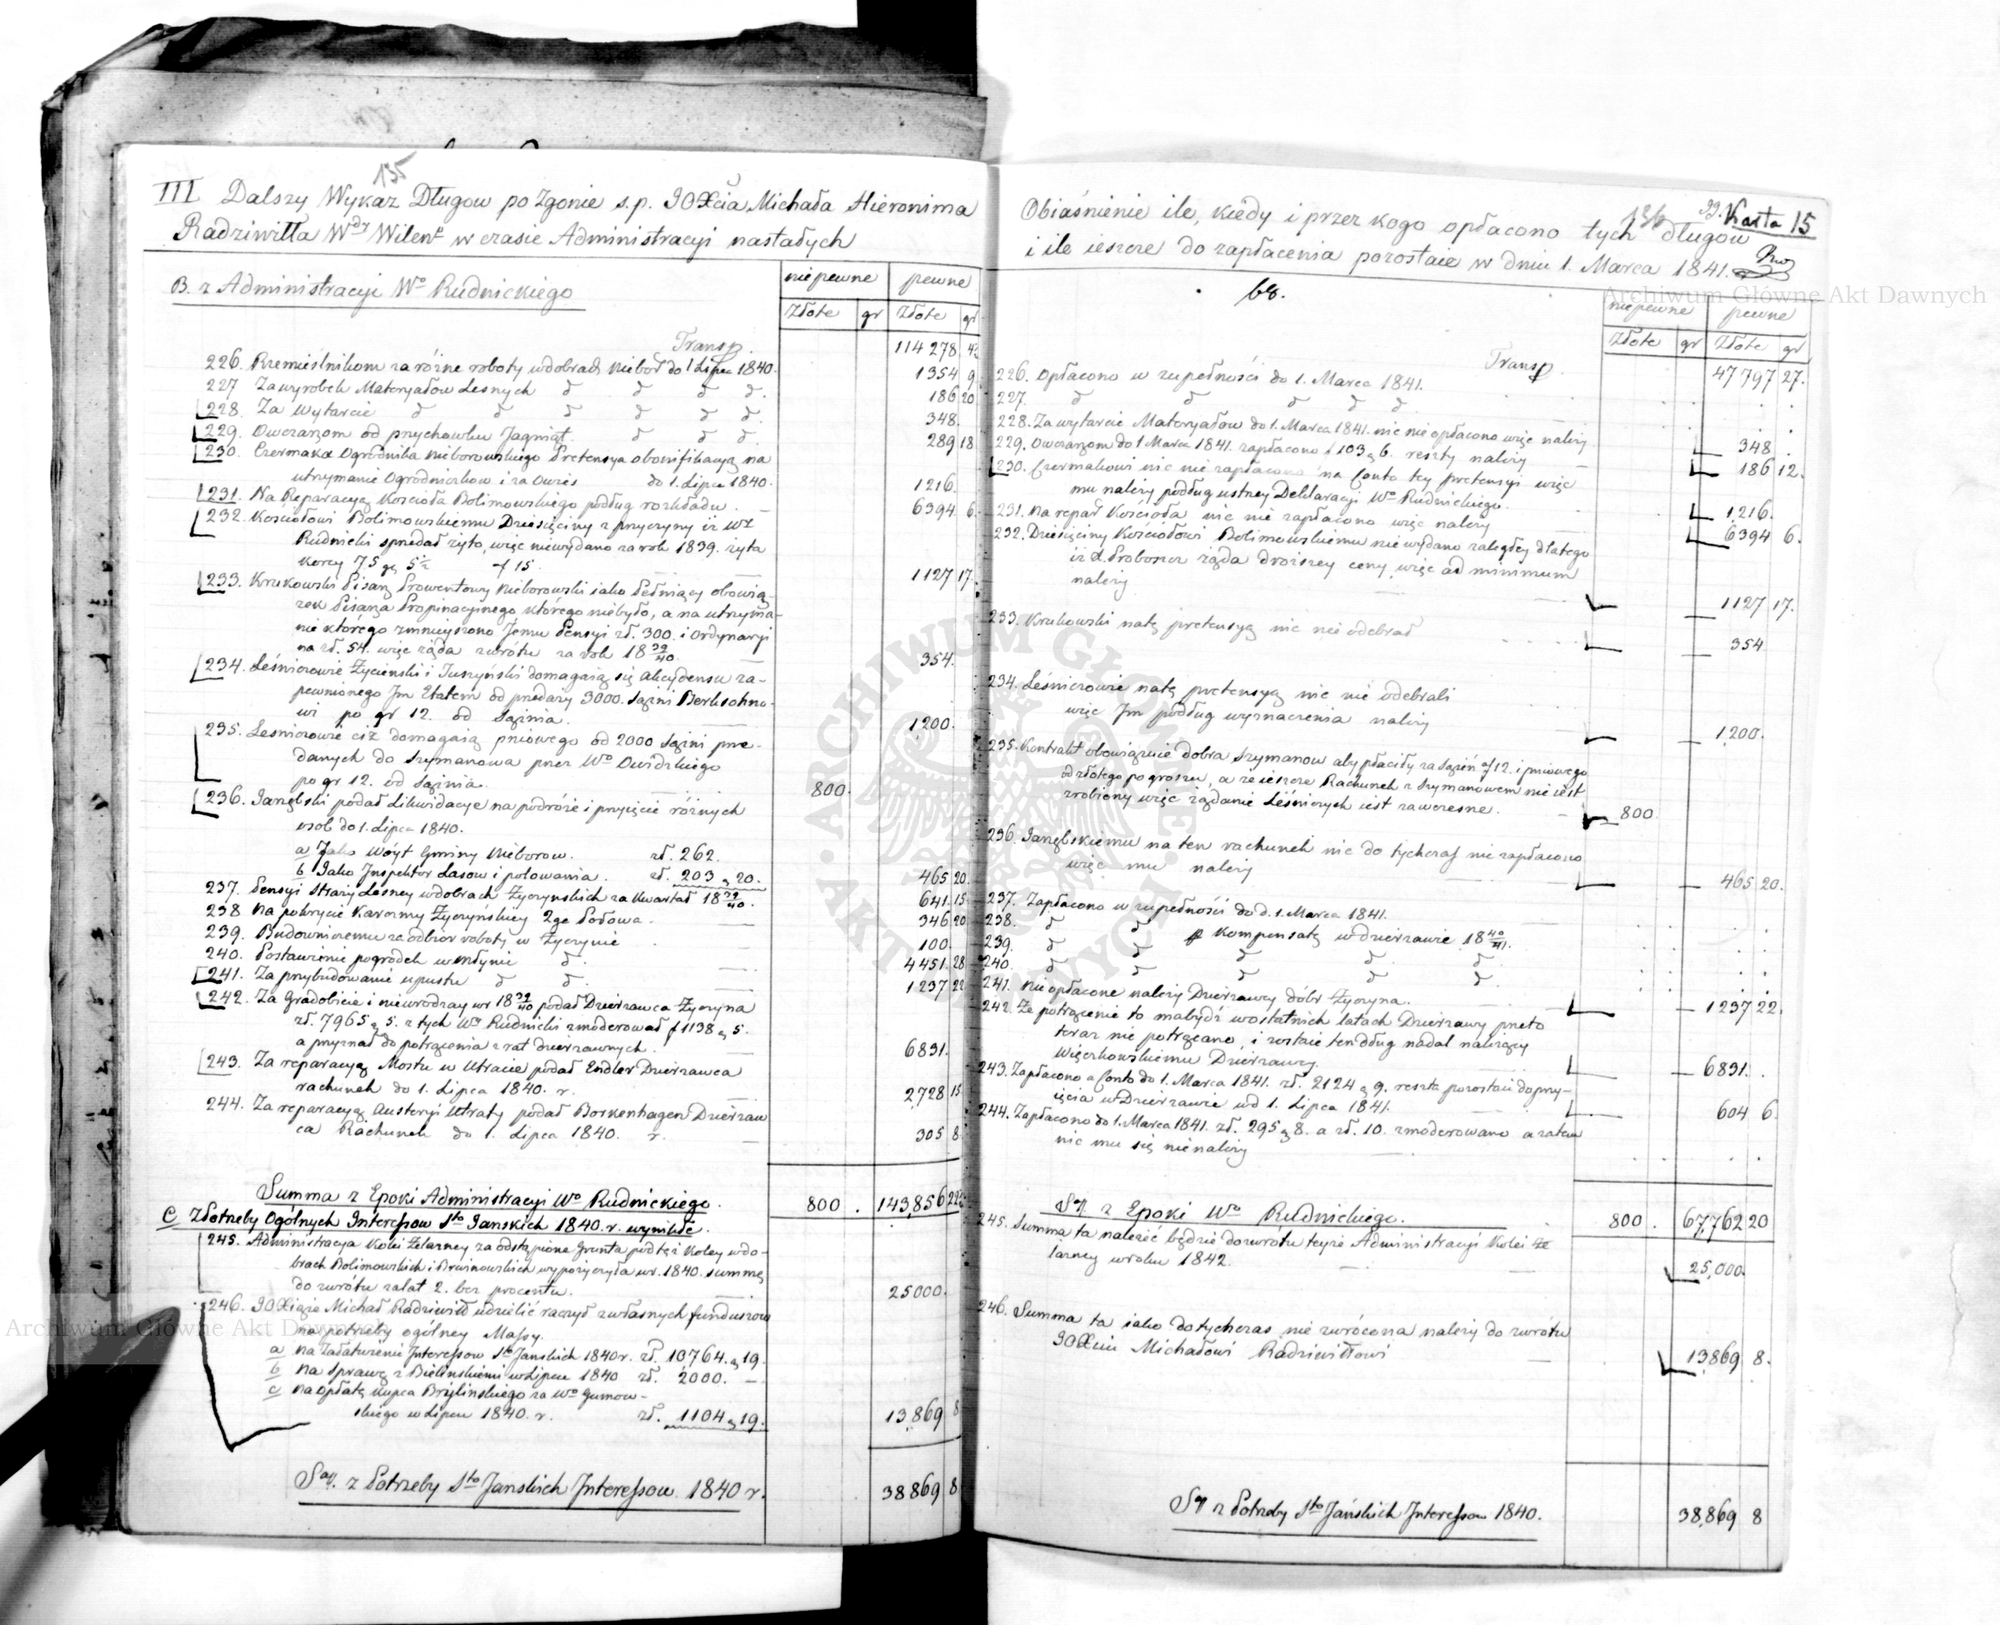 155
III Dalszy Wykaz Długow po Zgonie s.p. JOXcia Michała Hieronima
Radziwiłła Wdy Wileń w czasie Administracyi nastałych
B. z Administracyi Wo Rudnickiego
niepewne pewne
Złote gr Złote gr
Transp. 114278
226. Rzemieślnikom za różne roboty w dobrach Niebor do 1 Lipca 1840. 1354 9
227 Za wyrobek Materyałow Lesnych d d d. 186 20
228. Za Wytarcie d d d d d d. 348.
229. Owczarzom od przychowku Jagniąt. d d d. 289 18
230. Czermaka Ogrodnika Nieborowskiego Pretensya obonifikacyą na
utrzymanie Ogrodniczkow i za Owies do 1. Lipca 1840. 1216.
231. Na Reparacyą Kościoła Bolimowskiego podług rozkładu. 6394 6.
232. Kościołowi Bolimowskiemu Dziesięciny z przyczyny iż Wż
Rudnicki sprzedał żyto, więc niewydano za rok 1839. żyta
korcy 75 gr 5½ f 15. 1127 17.
233. Krukowski Pisarz Prowentowy Nieborowski iako Pełniący obowią-
zek Pisarza Propinacyinego którego niebyło, a na utrzyma-
nie którego zmnieyszono Jemu Pensyi zł. 300. i Ordynaryi
na zł. 54. więc żąda zwrotu za rok 18 39/40. 354.
234. Leśniczowie Życieński i Tuszyński domagaią się akcydensu za-
pewnionego Jm Etatem od przedaży 3000. Sążni Berksohno-
wi po gr 12. od Sążnia. 1,200.
235. Leśniczowie ciż domagaią pniowego od 2000 Sążni prze-
danych do Szymanowa przez Wo Owidzkiego
po gr 12. od Sążnia. 800.
236. Janębski podał Likwidacye na podróże i przyięcie różnych
osob do 1. Lipca 1840.
a Jako Wóyt Gminy Nieborow. zł. 262.
b Jako Inspektor Lasow i polowania. zł. 203 g 20. 465 20.
237. Pensyi Straży Lesney w dobrach Życzyńskich za Kwartał 18 39/40. 641. 15
238 Na pokrycie Karczmy Życzyńskiey 2ga Połowa. 346 20
239. Budowniczemu za odbior roboty w Życzynie 100.
240. Postawienie pogrodek w młynie d. 4451. 28
241. Za przybudowanie upustu d d. 1237 22
242. Za Gradobicie i nieurodzay wr 18 39/40 podał Dzierżawca Życzyna
zł. 7965 g 5. z tych Wo Rudnicki zmoderował f 1138 g 5.
a przyznał do potrącenia z rat dzierżawnych. 6831.
243. Za reparacyą Mostu w Utracie podał Endler Dzierżawca
rachunek do 1. Lipca 1840. r. 2,728 15
244. Za reparacyą Austeryi Utraty podał Borkenhagen Dzierżaw
ca Rachunek do 1. Lipca 1840. r. 305 8
Summa z Epoki Administracyi Wo Rudnickiego. 800. 143,856 22
C Z Potrzeby Ogólnych Interessow Sto Janskich 1840. r. wynikłe.
245. Administracya Kolei Żelazney za odstąpione Grunta pod też Koley w do-
brach Bolimowskich i Bruinowskich wypożyczyła wr. 1840. summę
do zwrótu za lat 2. bez procentu. 25000.
246. JOXiąże Michał Radziwiłł udzielić raczył z własnych funduszow
na potrzeby ogólney Massy.
a na Załatwienie Interessow Sto Janskich 1840 r. zł. 10764. g 19.
b na Sprawę z Bielinskiemi w Lipcu 1840 zł. 2000. —
c na opłatę Kupca Brylinskiego za Wo Gumow-
skiego w Lipcu 1840. r. zł. 1104 g 19. 13,869 8
Sa. z Potrzeby Sto Janskich Interessow 1840 r. 38869 8
136 Karta 15
Obiaśnienie ile, kiedy i przez kogo opłacono tych długow
i ile ieszcze do zapłacenia pozostaie w dniu 1. Marca 1841.
niepewne pewne
Złote gr Złote gr
Transp 47797 27.
226. Opłacono w zupełności do 1. Marca 1841.
227. d d d d d
228. Za wytarcie Materyałow do 1. Marca 1841. nic nie opłacono więc należy 348.
229. Owczarzom do 1 Marca 1841. zapłacono f 103 g 6. reszty należy 186 12.
230. Czermakowi nic nie zapłacono na Conto tey pretensyi więc
mu należy podług ustney Deklaracyi Wo Rudnickiego. 1216.
231. Na repar Kościoła nic nie zapłacono więc należy 6394 6.
232. Dziesięciny Kościołowi Bolimowskiemu nie wydano zaległey dlatego
iż X. Proboszcz żąda droższey ceny więc ad minimum
należy 1127 17.
233. Krukowski natę pretensyą nic nie odebrał 354
234. Leśniczowie natę pretensyą nic nie odebrali
więc Jm podług wyznaczenia należy 1,200.
235. Kontrakt obowiązuie dobra Szymanow aby płaciły za Sążeń zł 12. i pniowego
od złotego po groszu, a że ieszcze Rachunek z Szymanowem nie iest
zrobiony więc żądanie Leśniczych iest zawczesne. 800.
236. Janębskiemu na ten rachunek nic do tychczas nie zapłacono
więc mu należy 465 20.
237. Zapłacono w zupełności do d. 1. Marca 1841.
238. d d p Kompensatę w dzierżawie 18 40/41.
239. d d d d d.
240. d d d d d.
241. Nie opłacone należy Dzierżawcy dóbr Życzyna. 1237 22.
242. Że potrącenie to ma bydź w ostatnich latach Dzierżawy przeto
teraz nie potrącano, i zostaie ten dług nadal należący
Węzerkowskiemu Dzierżawcy. 6831.
243. Zapłacono a Conto do 1. Marca 1841. zł. 2124 g 9. reszta pozostaie do przy-
ięcia w Dzierżawie od 1. Lipca 1841. 604 6.
244. Zapłacono do 1. Marca 1841. zł. 295 g 8. a zł. 10. zmoderowano a zatem
nic mu się nie należy
Sa z Epoki Wo Rudnickiego. 800. 67,762 20
245. Summa ta należeć będzie do zwrotu teyże Administracyi Kolei Że
lazney w roku 1842. 25,000.
246. Summa ta iako dotychczas nie zwrócona należy do zwrótu
JOXciu Michałowi Radziwiłłowi 13869 8.
Sa z Potrzeby Sto Jańskich Interessow 1840. 38,869 8
Archiwum Główne Akt Dawnych
Archiwum Główne Akt Dawnych
ARCHIWUM GŁÓWNE AKT DAWNYCH